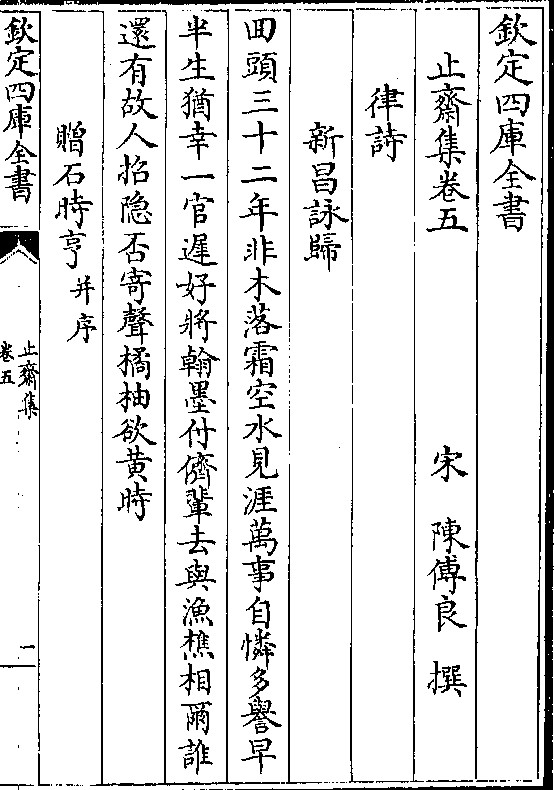 欽定四庫全書
止齋集卷五　宋　陳傅良　撰
律詩
新昌詠歸
回頭三十二年非木落霜空水見涯萬事自憐多譽早
半生猶幸一官遲好將翰墨付儕輩去與漁樵相爾誰
還有故人招隐否寄聲橘柚欲黄時
贈石時亨并序
欽定四庫全書
止齋集
卷五
一